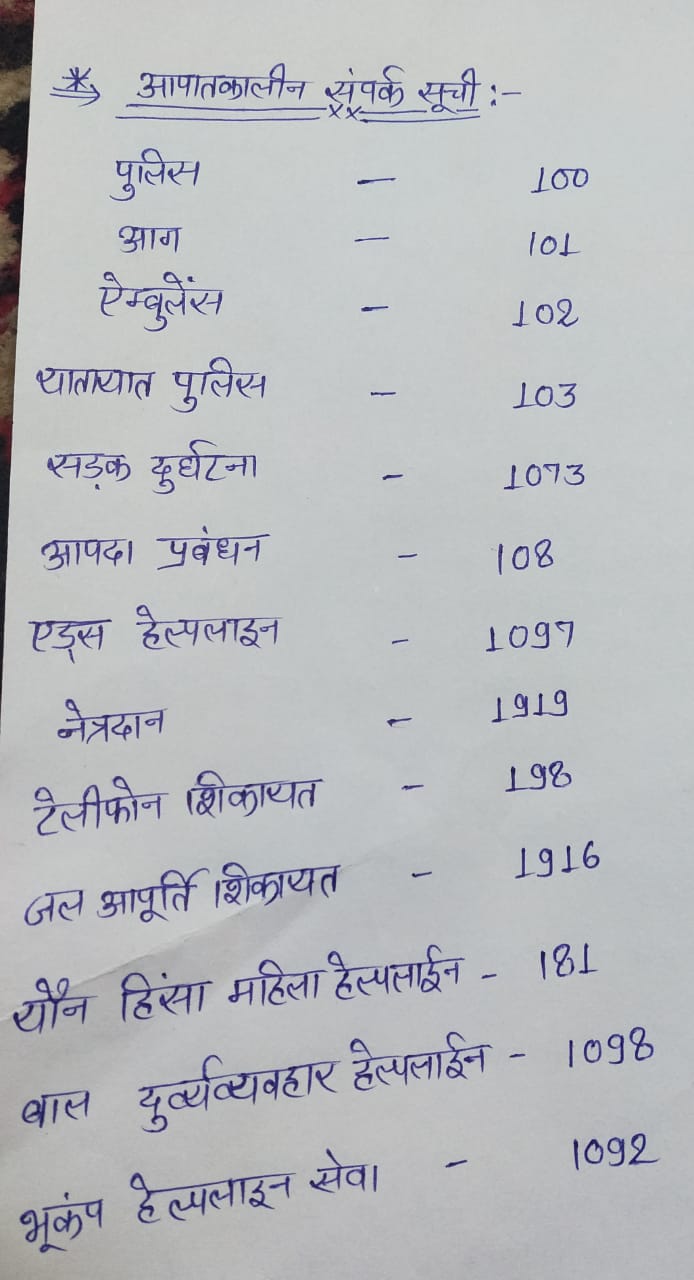 * आपातकालीन संपर्क सूची :-
पुलिस - 100
आग - 101
ऐम्बुलेंस - 102
यातायात पुलिस - 103
सड़क दुर्घटना - 1073
आपदा प्रबंधन - 108
एड्स हेल्पलाइन - 1097
नेत्रदान - 1919
टेलीफोन शिकायत - 198
जल आपूर्ति शिकायत - 1916
यौन हिंसा महिला हेल्पलाईन - 181
बाल दुर्व्यव्यवहार हेल्पलाईन - 1098
भूकंप हेल्पलाइन सेवा - 1092